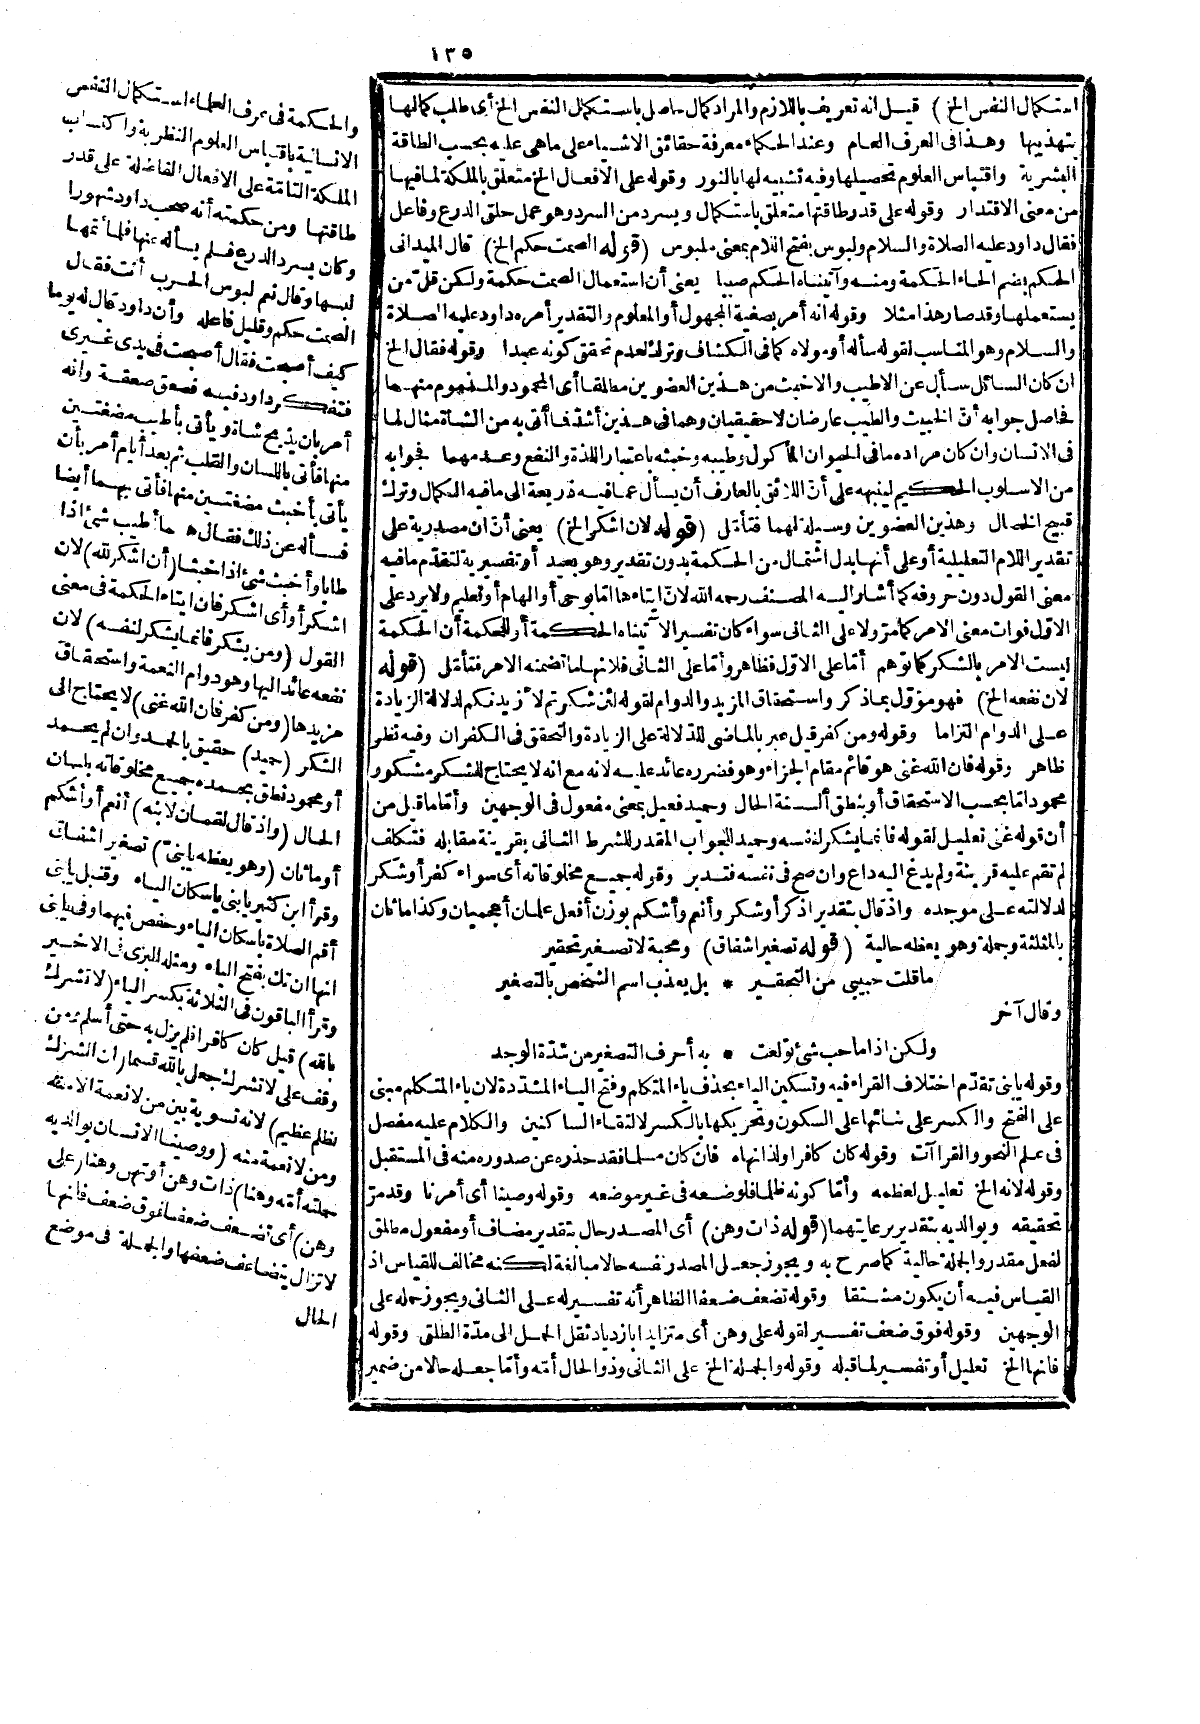 ١٣٥
استكمال النفس الخ) قيل انه تعريف باللازم والمراد كمال حاصل باستكمال النفس الخ أى طلب كمالها
بتهذيبها وهذا فى العرف العام وعند الحكماء معرفة حقائق الاشياء على ماهى عليه بحسب الطاقة
البشرية واقتباس العلوم تحصيلها وفيه تشبيه لها بالنور وقوله على الافعال الخ متعلق بالملكة لما فيها
من معنى الاقتدار وقوله على قدر طاقتها متعلق باستكمال ويسرد من السرد وهو عمل حلق الدرع وفاعل
فقال داود عليه الصلاة والسلام ولبوس بفتح اللام بمعنى ملبوس (قوله الصمت حكم الخ) قال الميدانى
الحكم بضم الحاء الحكمة ومنه وآتيناه الحكم صبيا يعنى أن استعمال الصمت حكمة ولكن قل من
يستعملها وقد صار هذا مثلا وقوله انه أمر بصيغة المجهول أو المعلوم والتقدير أمره داود عليه الصلاة
والسلام وهو المناسب لقوله سأله أو مولاه كما فى الكشاف وتركه لعدم تحقق كونه عبدا وقوله فقال الخ
ان كان السائل سأل عن الاطيب والاخبث من هذين العضوين مطلقا أى المحمود والمذموم منهما
فحاصل جوابه أن الخبيث والطيب عارضان لا حقيقيان وهما فى هذين أشد فما أتى به من الشاة مثال لما
فى الانسان وان كان مراده ما فى الحيوان المأكول وطيبه وخبثه باعتبار اللذة والنفع وعدمهما فجوابه
من الاسلوب الحكيم لينبهه على أن اللائق بالعارف أن يسأل عما فيه ذريعة الى ما فيه الكمال وترك
قبيح الخصال وهذين العضوين وسيلة لهما فتأمل (قوله لان اشكر الخ) يعنى أن ان مصدرية على
تقدير اللام التعليلية أو على أنها بدل اشتمال من الحكمة بدون تقدير وهو بعيد أو تفسيرية لتقدم ما فيه
معنى القول دون حروفه كما أشار اليه المصنف رحمه الله لان ايتاءها اما بوحى أو الهام أو تعليم ولا يرد على
الاول فوات معنى الامر كما مر ولا على الثانى سواء كان تفسير الآتيناه الحكمة أو للحكمة أن الحكمة
ليست الامر بالشكر كما توهم أما على الاول فظاهر وأما على الثانى فلانها ما تضمنه الامر فتأمل (قوله
لان نفعه الخ) فهو مؤول بما ذكر واستحقاق المزيد والدوام لقوله لئن شكرتم لأزيدنكم لدلالة الزيادة
على الدوام التزاما وقوله ومن كفر قيل عبر بالماضى للدلالة على الزيادة والتحقق فى الكفران وفيه نظر
ظاهر وقوله فان الله غنى هو قائم مقام الجزاء وهو فضرره عائد عليه لانه مع انه لا يحتاج للشكر مشكور
محمود اما بحسب الاستحقاق أو بنطق ألسنة الحال وحميد فعيل بمعنى مفعول فى الوجهين وأما ما قيل من
أن قوله غنى تعليل لقوله فانما يشكر لنفسه وحميد للجواب المقدر للشرط الثانى بقرينة مقابله فتكلف
لم تقم عليه قرينة ولم يدع اليه داع وان صح فى نفسه فتدبر وقوله جميع مخلوقاته أى سواء كفر أو شكر
لدلالته على موجده واذ قال بتقدير اذكر أو شكر وأنم وأشكم بوزن أفعل علمان أعجميان وكذا ماثان
بالمثلثة وجملة وهو يعظه حالية (قوله تصغير اشفاق) ومحبة لا تصغير تحقير
ما قلت حبيبى من التحقير * بل يعذب اسم الشخص بالتصغير
وقال آخر
ولكن اذا ما حب شئ تولعت * به أحرف التصغير من شدة الوجد
وقوله يا بنى تقدم اختلاف القراء فيه وتسكين الياء بحذف ياء المتكلم وفتح الياء المشددة لان ياء المتكلم مبنى
على الفتح والكسر على بنائها على السكون وتحريكها بالكسر لالتقاء الساكنين والكلام عليه مفصل
فى علم النحو والقراآت وقوله كان كافرا ولذا نهاه فان كان مسلما فقد حذره عن صدوره منه فى المستقبل
وقوله لانه الخ تعليل لعظمه وأما كونه ظلما فلوضعه فى غير موضعه وقوله وصينا أى أمرنا وقد مر
تحقيقه وبوالديه بتقدير برعايتهما (قوله ذات وهن) أى المصدر حال بتقدير مضاف أو مفعول مطلق
لفعل مقدر والجملة حالية كما صرح به ويجوز جعل المصدر نفسه حالا مبالغة لكنه مخالف للقياس اذ
القياس فيه أن يكون مشتقا وقوله تضعف ضعفا الظاهر أنه تفسير له على الثانى ويجوز حمله على
الوجهين وقوله فوق ضعف تفسير لقوله على وهن أى متزايدا بازدياد ثقل الحمل الى مدة الطلق وقوله
فانها الخ تعليل أو تفسير لما قبله وقوله والجملة الخ على الثانى وذو الحال أمه وأما جعله حالا من ضمير
والحكمة فى عرف العلماء استكمال النفس
الانسانية باقتباس العلوم النظرية واكتساب
الملكة التامة على الافعال الفاضلة على قدر
طاقتها ومن حكمته أنه صحب داود شهورا
وكان يسرد الدرع فلم يسأله عنها فلما أتمها
لبسها وقال نعم لبوس الحرب أنت فقال
الصمت حكم وقليل فاعله وأن داود قال له يوما
كيف أصبحت فقال أصبحت فى يدى غيرى
فتفكر داود فيه فصعق صعقة وانه
أمر بان يذبح شاة ويأتى بأطيب مضغتين
منها فأتى باللسان والقلب ثم بعد أيام أمر بأن
يأتى بأخبث مضغتين منها فأتى بهما أيضا
فسأله عن ذلك فقال هما أطيب شئ اذا
طابا وأخبث شئ اذا خبثا (أن اشكر لله) لان
اشكر أو أى اشكر فان ايتاء الحكمة فى معنى
القول (ومن يشكر فانما يشكر لنفسه) لان
نفعه عائد اليها وهو دوام النعمة واستحقاق
مزيدها (ومن كفر فان الله غنى) لا يحتاج الى
الشكر (حميد) حقيق بالحمد وان لم يحمد
أو محمود نطق بحمده جميع مخلوقاته بلسان
الحال (واذ قال لقمان لابنه) أنعم أو أشكم
أو ماثان (وهو يعظه يا بنى) تصغير اشفاق
وقرأ ابن كثير يا بنى باسكان الياء وقنبل يا بنى
أقم الصلاة باسكان الياء وحفص فيهما وفى يا بنى
انها ان تك بفتح الياء ومثله البزى فى الاخير
وقرأ الباقون فى الثلاثة بكسر الياء (لا تشرك
بالله) قيل كان كافرا فلم يزل به حتى أسلم ومن
وقف على لا تشرك جعل بالله قسما (ان الشرك
لظلم عظيم) لانه تسوية بين من لا نعمة الا منه
ومن لا نعمة منه (ووصينا الانسان بوالديه
حملته أمه وهنا) ذات وهن أو تهن وهنا (على
وهن) أى تضعف ضعفا فوق ضعف فانها
لا تزال يتضاعف ضعفها والجملة فى موضع
الحال